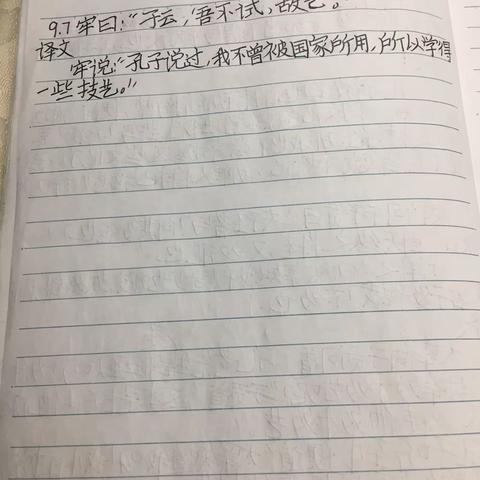 9.7 牢曰:“子云,‘吾不试,故艺。’
译文
牢说:“孔子说过,我不曾被国家所用,所以学得
一些技艺。”